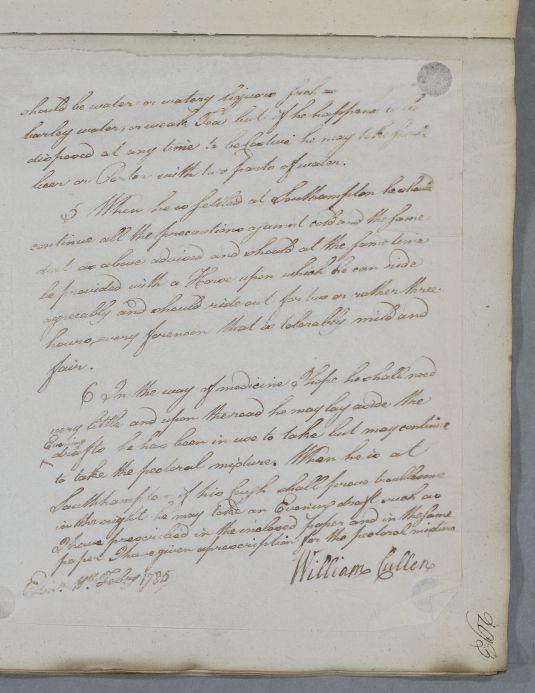 should be water or watery liquors such as
barley water, or weak Tea but if he happens to be
disposed at any time to be laxative he may take small
beer or Porter with two parts of water.
5 When he is setled at Southampton he should
continue all the precautions against cold and the same
diet as above advised and should at the same time
be provided with a Horse upon which he can ride
agreeably and should ride out for two or rather three
hours, every forenoon that is tolerably mild and
fair.
6 In the way of medicine I hope he shall need
very little and upon the road he may lay aside the
Evening
+ drafts he has been in use to take but may continue
to take the pectoral mixture. When he is at
Southhampton if his cough shall prove troublesome
in the night he may take an Evening draft such as
I have prescribed in the inclosed paper and in the same
paper I have given a prescription for the pectoral mixture
William Cullen
Edinr. Feby 1785